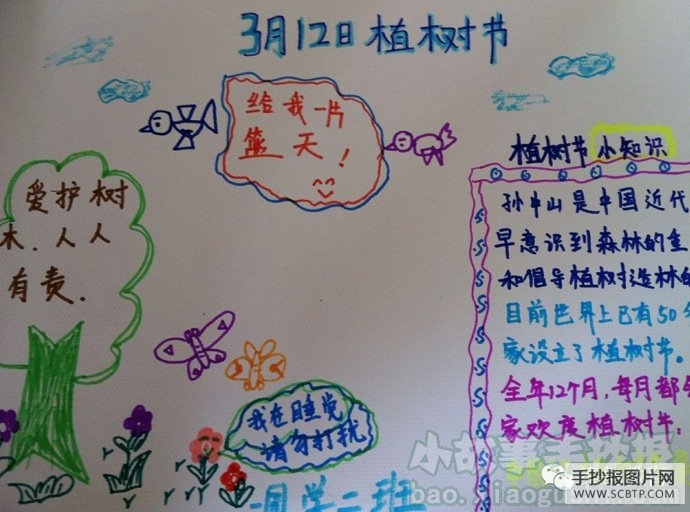 3月12日植树节
给我一片
篮天!
爱护树
木.人人
有责.
植树节小知识
孙中山是中国近代
早意识到森林的重
和倡导植树造林的
目前世界上已有50
家设立了植树节。
全年12个月,每月都
家欢度植树
我在睡觉
请勿打扰
手抄报图片网
WWW.SCBTP.COM
bao.xiaogushi